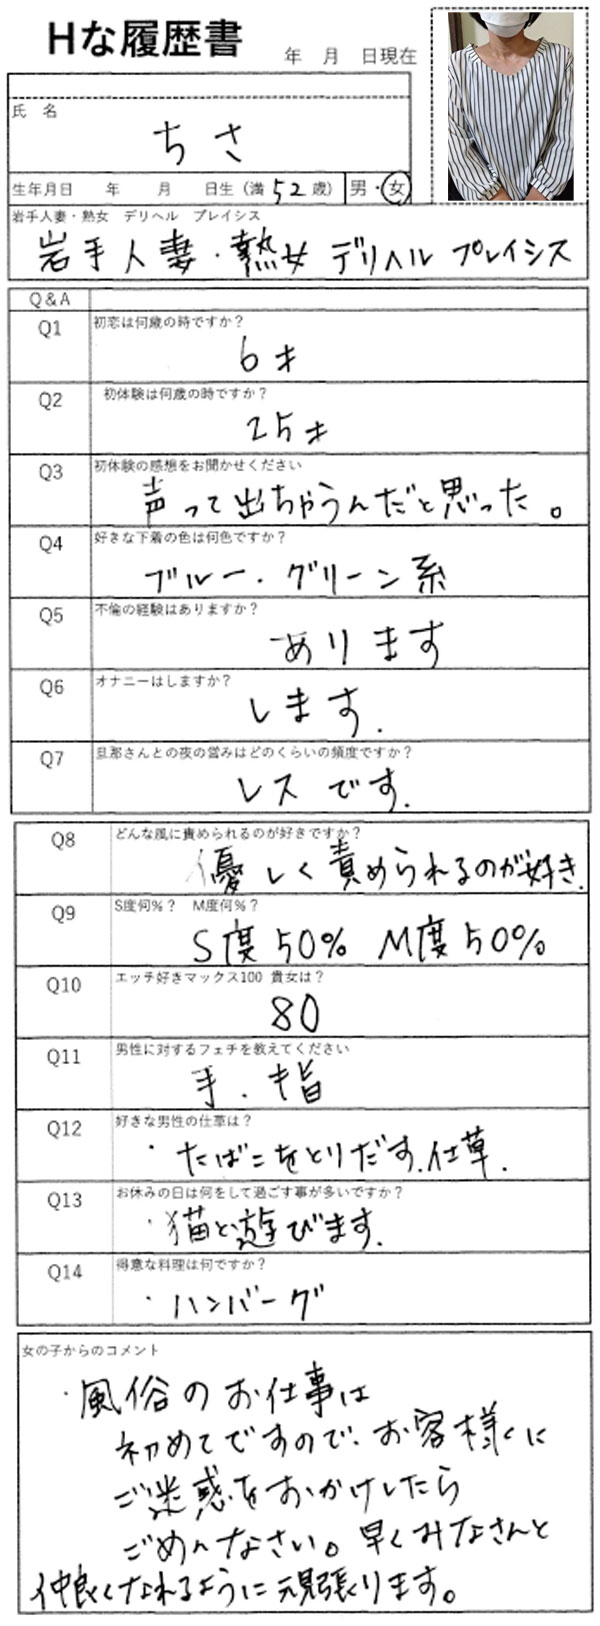 Hな履歴書
年 月 日現在
氏 名
ちさ
生年月日 年 月 日生 (満 52 歳) 男・女
岩手人妻・熟女 デリヘル プレイシス
岩手人妻・熟女 デリヘル プレイシス
Q&A
Q1 初恋は何歳の時ですか?
6才
Q2 初体験は何歳の時ですか?
25才
Q3 初体験の感想をお聞かせください
声って出ちゃうんだと思った。
Q4 好きな下着の色は何色ですか?
ブルー・グリーン系
Q5 不倫の経験はありますか?
あります
Q6 オナニーはしますか?
します.
Q7 旦那さんとの夜の営みはどのくらいの頻度ですか?
レスです.
Q8 どんな風に責められるのが好きですか?
優しく責められるのが好き.
Q9 S度何%? M度何%?
S度50% M度50%
Q10 エッチ好きマックス100 貴女は?
80
Q11 男性に対するフェチを教えてください
手.指
Q12 好きな男性の仕草は?
・たばこをとりだす.仕草.
Q13 お休みの日は何をして過ごす事が多いですか?
・猫と遊びます.
Q14 得意な料理は何ですか?
・ハンバーグ
女の子からのコメント
・風俗のお仕事は
初めてですので、お客様に
ご迷惑をおかけしたら
ごめんなさい。早くみなさんと
仲良くなれるように頑張ります。